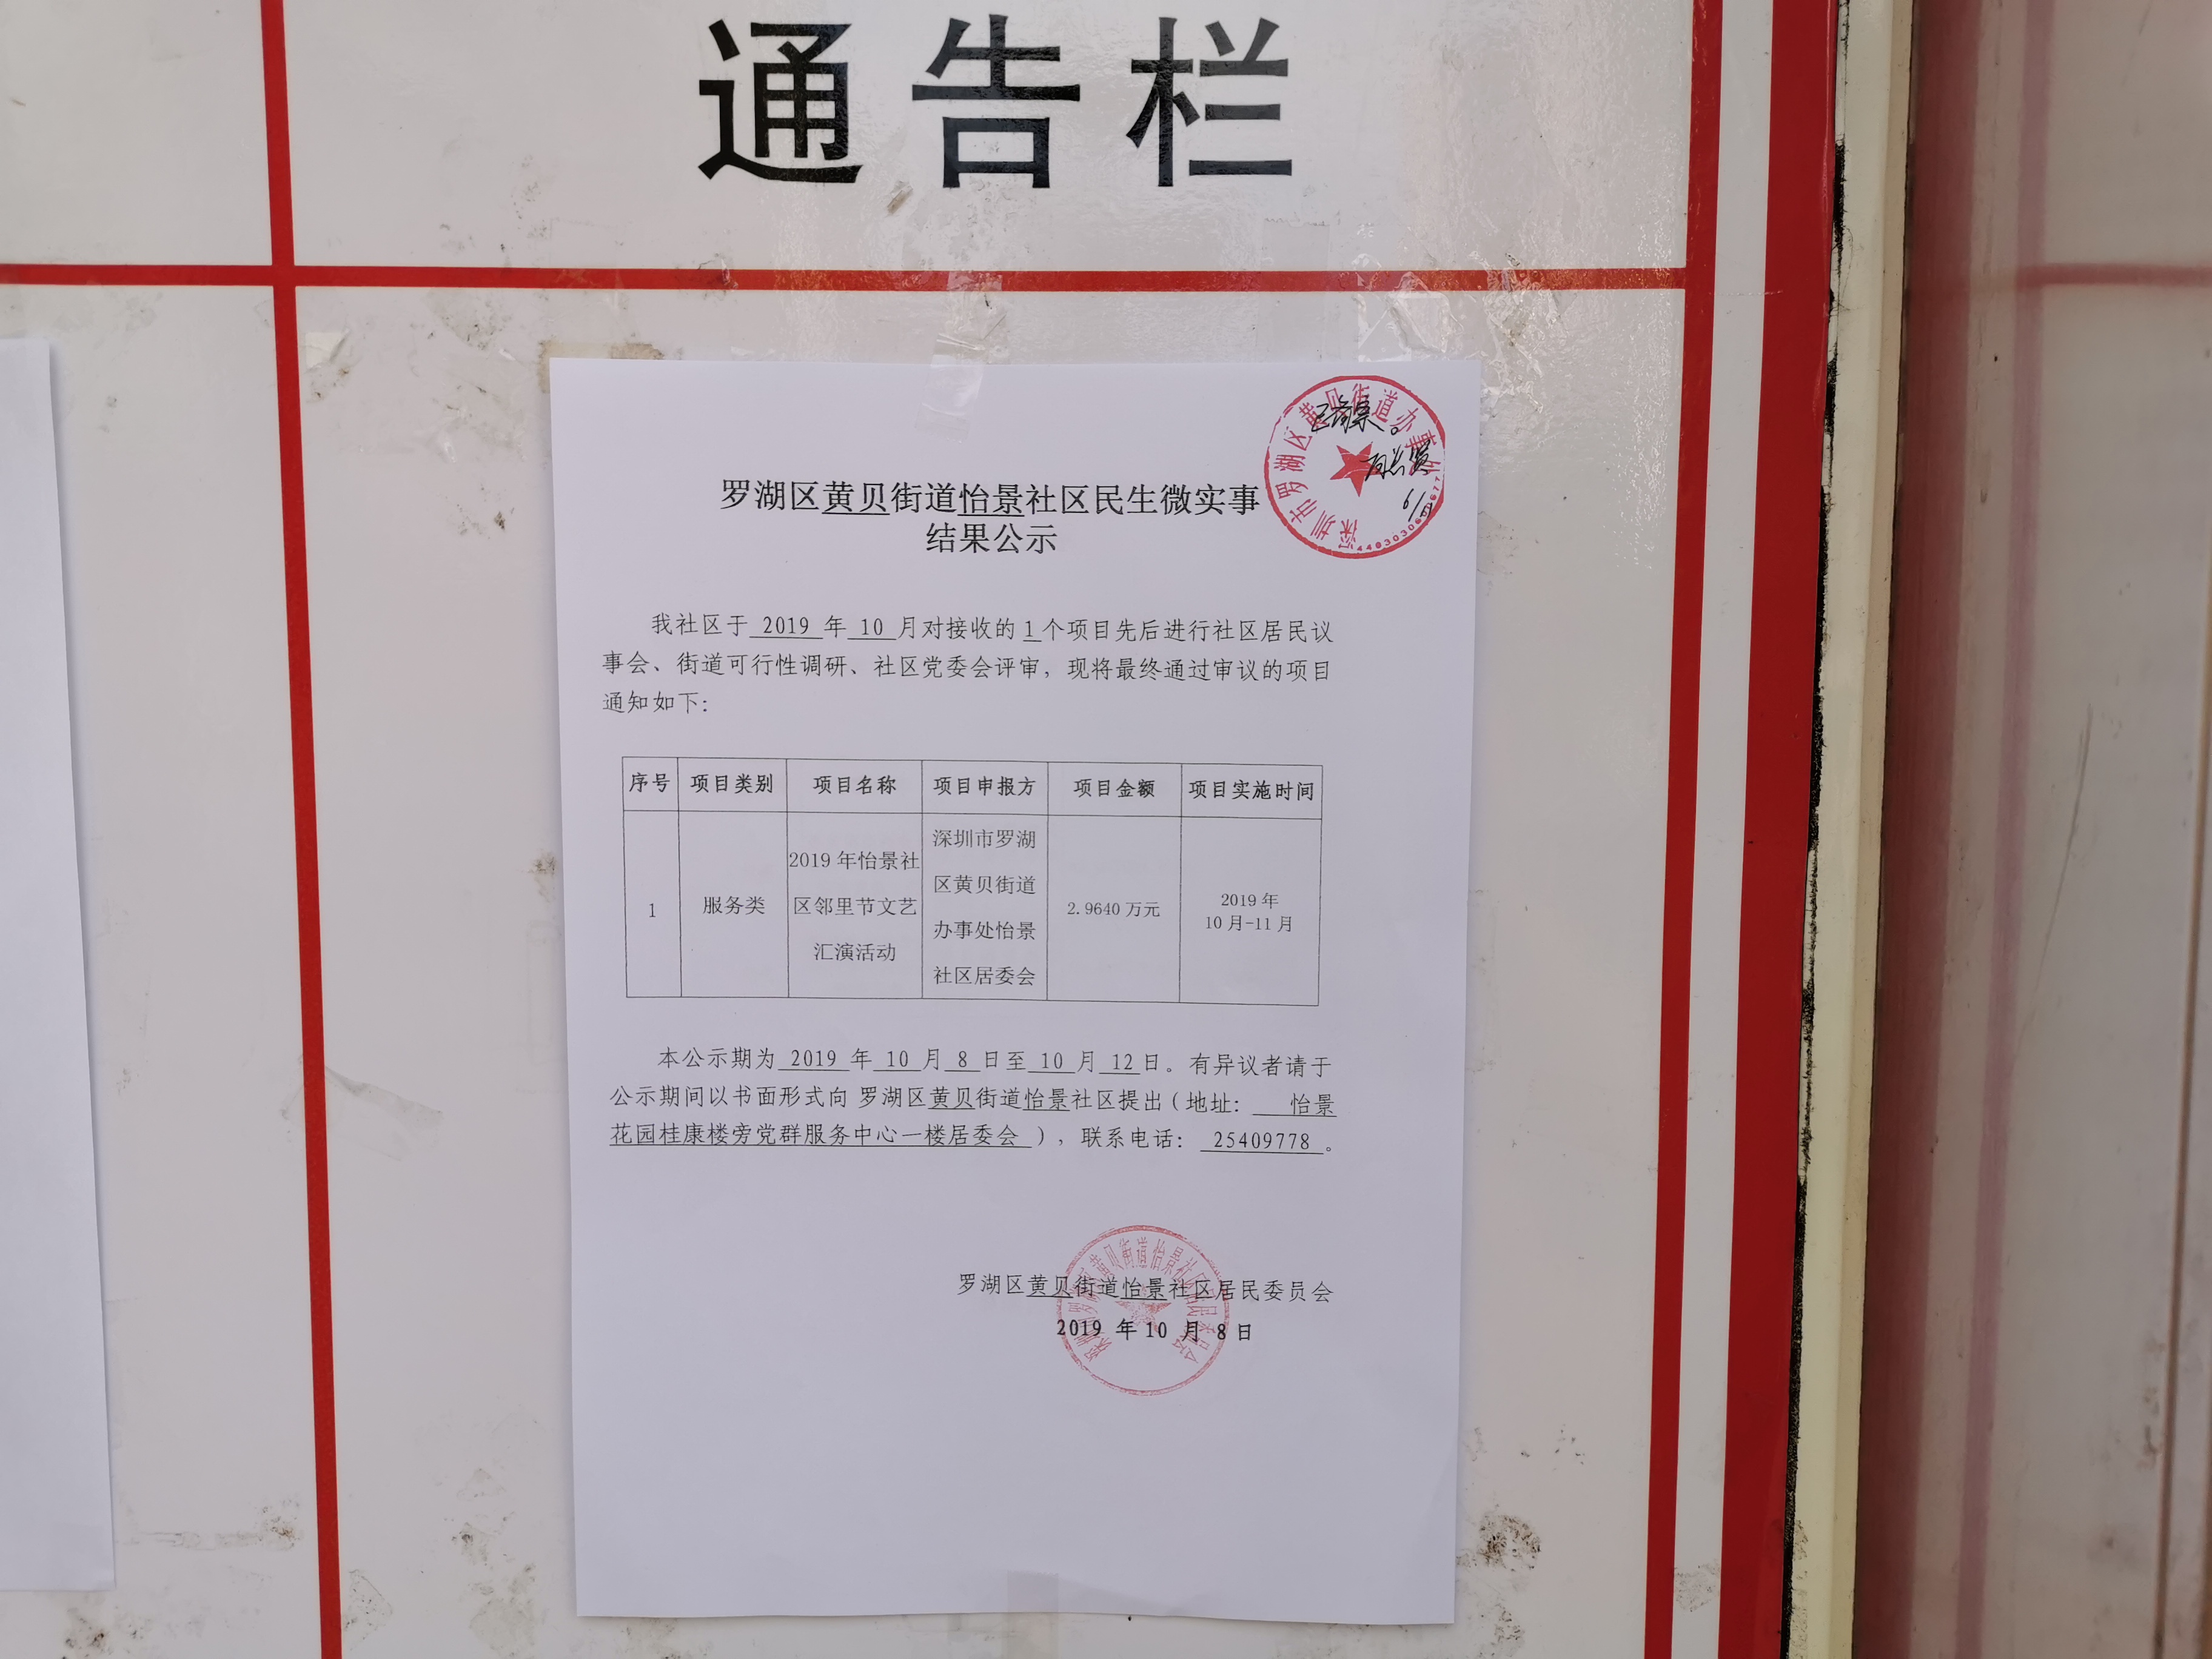 通告栏
罗湖区黄贝街道怡景社区民生微实事
结果公示
深圳市罗湖区黄贝街道办事处
我社区于 2019 年 10 月对接收的 1 个项目先后进行社区居民议
事会、街道可行性调研、社区党委会评审，现将最终通过审议的项目
通知如下：
序号 项目类别 项目名称 项目申报方 项目金额 项目实施时间
1 服务类 2019 年怡景社区邻里节文艺汇演活动 深圳市罗湖区黄贝街道办事处怡景社区居委会 2.9640 万元 2019 年10 月-11 月
本公示期为 2019 年 10 月 8 日至 10 月 12 日。有异议者请于
公示期间以书面形式向 罗湖区黄贝街道怡景社区提出（地址： 怡景
花园桂康楼旁党群服务中心一楼居委会 ），联系电话： 25409778 。
罗湖区黄贝街道怡景社区居民委员会
2019 年 10 月 8 日